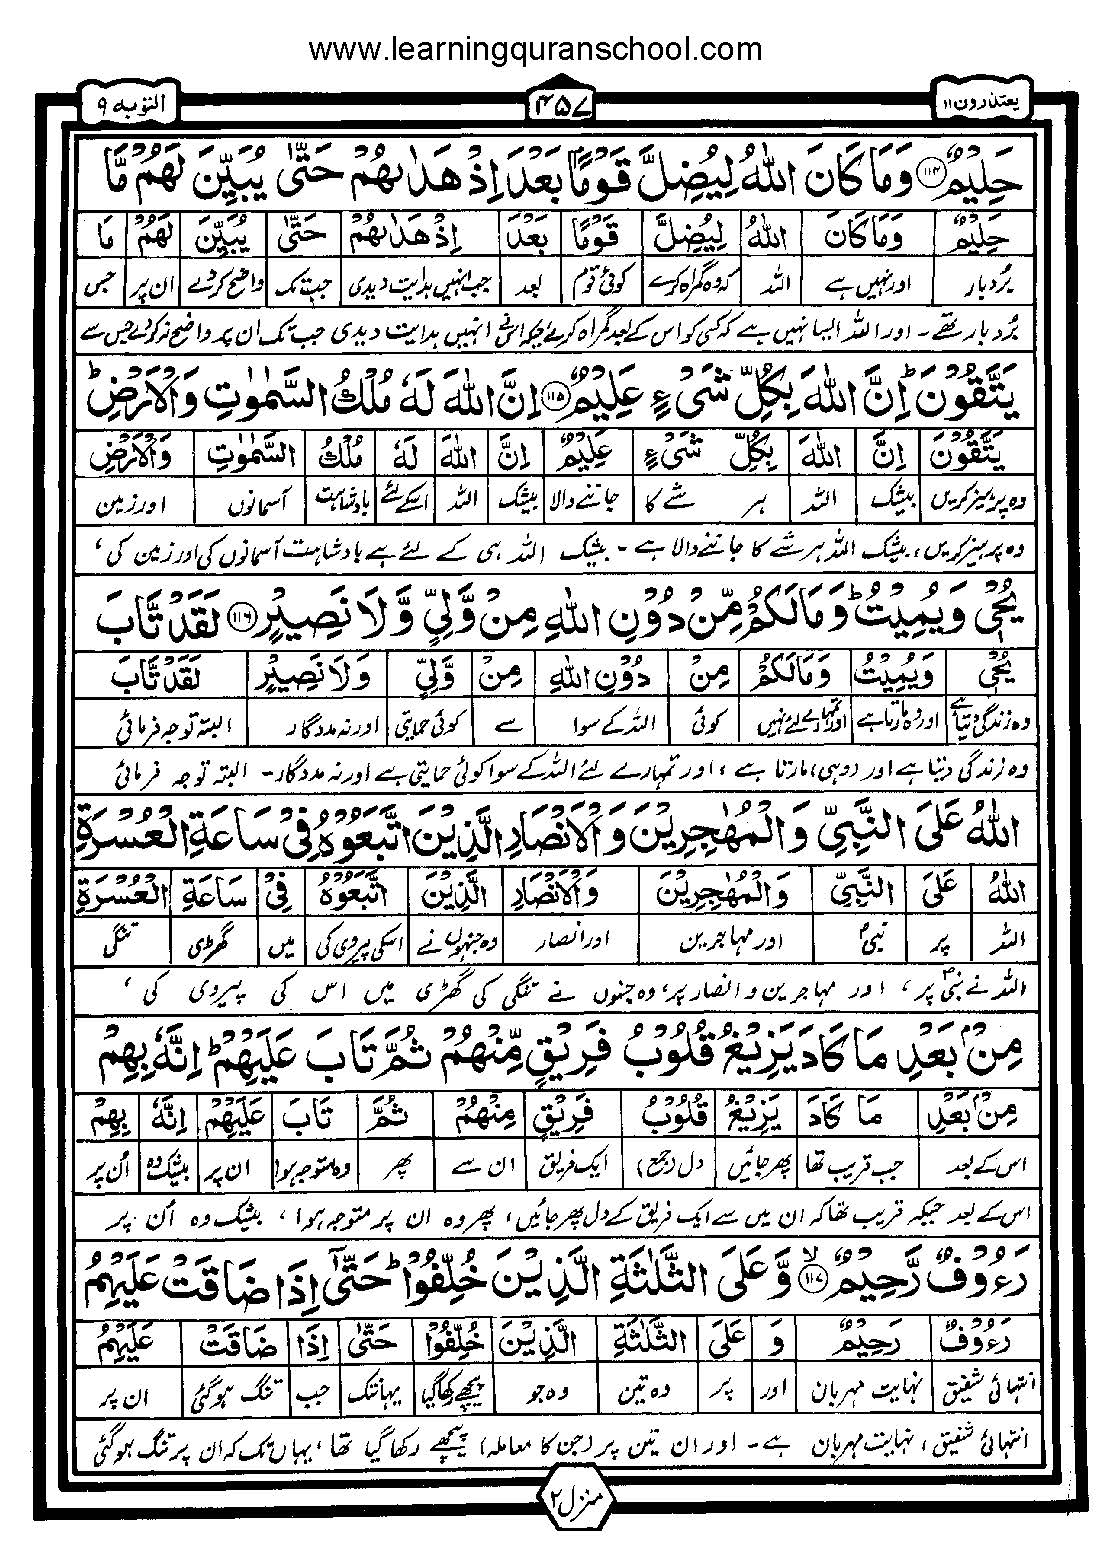 www.learningquranschool.com
یعتذرون ۱۱ ۴۵۷ التوبہ ۹
حَلِيْمٌ ۝۱۱۴ وَمَا كَانَ اللّٰهُ لِيُضِلَّ قَوْمًۢا بَعْدَ اِذْ هَدٰىهُمْ حَتّٰى يُبَيِّنَ لَهُمْ مَّا
حَلِيْمٌ وَمَا كَانَ اللّٰهُ لِيُضِلَّ قَوْمًا بَعْدَ اِذْ هَدٰىهُمْ حَتّٰى يُبَيِّنَ لَهُمْ مَا
بردبار اور نہیں ہے اللہ کہ وہ گمراہ کرے کوئی قوم بعد جب انہیں ہدایت دیدی جب تک واضح کردے ان پر جس
بردبار تھے۔ اور اللہ ایسا نہیں ہے کہ کسی کو اس کے بعد گمراہ کرے جبکہ اسنے انہیں ہدایت دیدی جب تک ان پر واضح نہ کردے جس سے
يَتَّقُوْنَ ؕ اِنَّ اللّٰهَ بِكُلِّ شَىْءٍ عَلِيْمٌ ۝۱۱۵ اِنَّ اللّٰهَ لَهٗ مُلْكُ السَّمٰوٰتِ وَالْاَرْضِ ؕ
يَتَّقُوْنَ اِنَّ اللّٰهَ بِكُلِّ شَىْءٍ عَلِيْمٌ اِنَّ اللّٰهَ لَهٗ مُلْكُ السَّمٰوٰتِ وَالْاَرْضِ
وہ پرہیز کریں بیشک اللہ ہر شے کا جاننے والا بیشک اللہ اسکے لئے بادشاہت آسمانوں اور زمین
وہ پرہیز کریں، بیشک اللہ ہر شے کا جاننے والا ہے۔ بیشک اللہ ہی کے لئے ہے بادشاہت آسمانوں کی اور زمین کی،
يُحْىٖ وَيُمِيْتُ ؕ وَمَا لَكُمْ مِّنْ دُوْنِ اللّٰهِ مِنْ وَّلِيٍّ وَّلَا نَصِيْرٍ ۝۱۱۶ لَقَدْ تَّابَ
يُحْىٖ وَيُمِيْتُ وَمَا لَكُمْ مِنْ دُوْنِ اللّٰهِ مِنْ وَّلِيٍّ وَلَا نَصِيْرٍ لَقَدْ تَّابَ
وہ زندگی دیتا ہے اور وہ مارتا ہے اور تمہارے لئے نہیں کوئی اللہ کے سوا سے کوئی حمایتی اور نہ مددگار البتہ توجہ فرمائی
وہ زندگی دیتا ہے اور (وہی) مارتا ہے، اور تمہارے لئے اللہ کے سوا کوئی حمایتی ہے اور نہ مددگار۔ البتہ توجہ فرمائی
اللّٰهُ عَلَى النَّبِيِّ وَالْمُهٰجِرِيْنَ وَالْاَنْصَارِ الَّذِيْنَ اتَّبَعُوْهُ فِىْ سَاعَةِ الْعُسْرَةِ
اللّٰهُ عَلَى النَّبِيِّ وَالْمُهٰجِرِيْنَ وَالْاَنْصَارِ الَّذِيْنَ اتَّبَعُوْهُ فِىْ سَاعَةِ الْعُسْرَةِ
اللہ پر نبیؐ اور مہاجرین اور انصار وہ جنہوں نے اسکی پیروی کی میں گھڑی تنگی
اللہ نے نبیؐ پر، اور مہاجرین و انصار پر، وہ جنہوں نے تنگی کی گھڑی میں اس کی پیروی کی،
مِنْۢ بَعْدِ مَا كَادَ يَزِيْغُ قُلُوْبُ فَرِيْقٍ مِّنْهُمْ ثُمَّ تَابَ عَلَيْهِمْ ؕ اِنَّهٗ بِهِمْ
مِنْۢ بَعْدِ مَا كَادَ يَزِيْغُ قُلُوْبُ فَرِيْقٍ مِنْهُمْ ثُمَّ تَابَ عَلَيْهِمْ اِنَّهٗ بِهِمْ
اس کے بعد جب قریب تھا پھر جائیں دل (جمع) ایک فریق ان سے پھر وہ متوجہ ہوا ان پر بیشک وہ اُن پر
اس کے بعد جبکہ قریب تھا کہ ان میں سے ایک فریق کے دل پھر جائیں، پھر وہ ان پر متوجہ ہوا، بیشک وہ اُن پر
رَءُوْفٌ رَّحِيْمٌ ۙ۝۱۱۷ وَّعَلَى الثَّلٰثَةِ الَّذِيْنَ خُلِّفُوْا ؕ حَتّٰٓى اِذَا ضَاقَتْ عَلَيْهِمُ
رَءُوْفٌ رَحِيْمٌ وَ عَلَى الثَّلٰثَةِ الَّذِيْنَ خُلِّفُوْا حَتّٰى اِذَا ضَاقَتْ عَلَيْهِمُ
انتہائی شفیق نہایت مہربان اور پر وہ تین وہ جو پیچھے رکھا گیا یہانتک جب تنگ ہوگئی ان پر
انتہائی شفیق، نہایت مہربان ہے۔ اور ان تین پر (جن کا معاملہ) پیچھے رکھا گیا تھا، یہاں تک کہ ان پر تنگ ہوگئی
منزل ۲